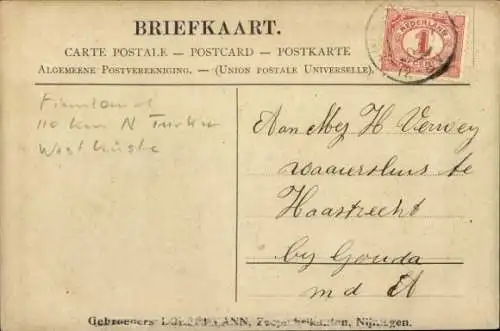 BRIEFKAART.
CARTE POSTALE — POSTCARD — POSTKARTE
ALGEMEENE POSTVEREENIGING. — (UNION POSTALE UNIVERSELLE).
NEDERLAND
1
CENT
Finnland
110 km N Turku
Westküste
Aan Mej H Verwey
waaiersluis te
Haastrecht
by Gouda
Gebroeders Zeepfabrikanten, Nijmegen.